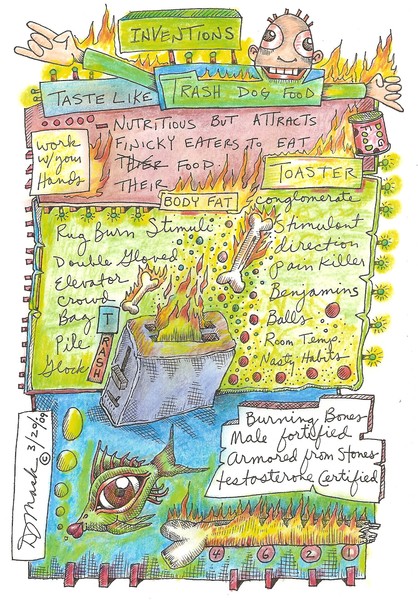 INVENTIONS
TASTE LIKE TRASH DOG FOOD
- NUTRITIOUS BUT ATTRACTS
FINICKY EATERS TO EAT
THIER FOOD.
THEIR
work
w/your
Hands
TOASTER
BODY FAT conglomerate
Rug Burn Stimuli
Double Gloved
Elevator
Crowd
Bag
Pile
Glock
TRASH
Stimulant
direction
Pain Killer
Benjamins
Balls
Room Temp.
Nasty Habits
Burning Bones
Male fortified
Armored from Stones
testosterone Certified
DJMack 3/29/09 ©
4 6 2 1